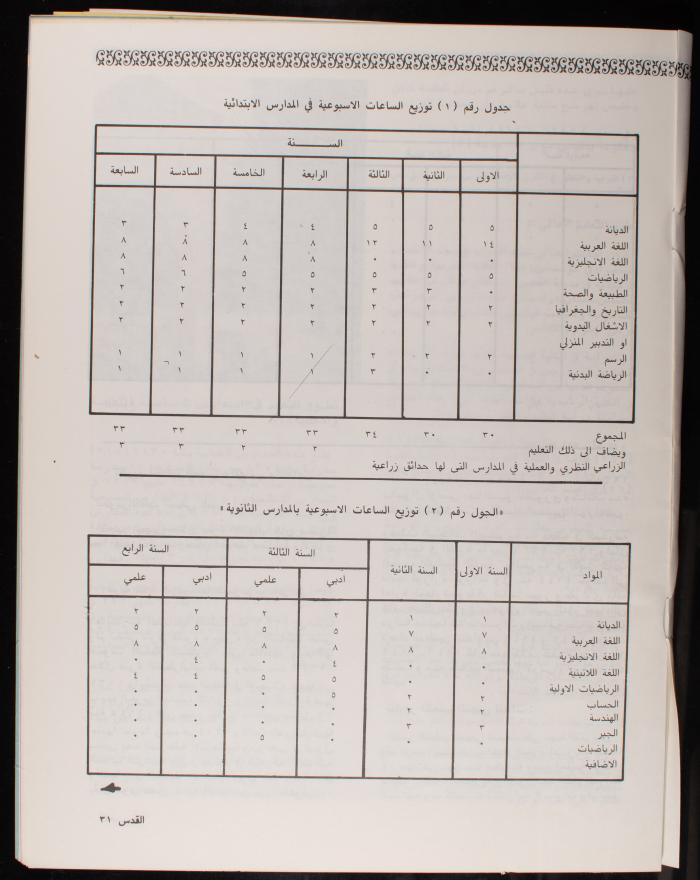 جدول رقم (١) توزيع الساعات الاسبوعية في المدارس الابتدائية
الســـنة
الاولى الثانية الثالثة الرابعة الخامسة السادسة السابعة
الديانة ٥ ٥ ٥ ٤ ٤ ٣ ٣
اللغة العربية ١٤ ١١ ١٢ ٨ ٨ ٨ ٨
اللغة الانجليزية ٠ ٠ ٠ ٨ ٨ ٨ ٨
الرياضيات ٥ ٥ ٥ ٥ ٥ ٦ ٦
الطبيعة والصحة ٠ ٣ ٣ ٢ ٢ ٢ ٢
التاريخ والجغرافيا ٢ ٢ ٢ ٢ ٢ ٢ ٢
الاشغال اليدوية ٢ ٢ ٢ ٢ ٢ ٢ ٢
او التدبير المنزلي
الرسم ٢ ٢ ٢ ١ ١ ١ ١
الرياضة البدنية ٠ ٠ ٣ ١ ١ ١ ١
المجموع ٣٠ ٣٠ ٣٤ ٣٣ ٣٣ ٣٣ ٣٣
ويضاف الى ذلك التعليم ٢ ٢ ٣ ٣
الزراعي النظري والعملية في المدارس التى لها حدائق زراعية
«الجول رقم (٢) توزيع الساعات الاسبوعية بالمدارس الثانوية»
المواد السنة الاولى السنة الثانية السنة الثالثة السنة الرابع
ادبي علمي ادبي علمي
الديانة ١ ١ ٢ ٢ ٢ ٢
اللغة العربية ٧ ٧ ٥ ٥ ٥ ٥
اللغة الانجليزية ٨ ٨ ٨ ٨ ٨ ٨
اللغة اللاتينية ٠ ٠ ٤ ٠ ٤ ٠
الرياضيات الاولية ٠ ٠ ٥ ٥ ٤ ٤
الحساب ٢ ٢ ٠ ٠ ٠
الهندسة ٢ ٢ ٠ ٠ ٠ ٠
الجبر ٣ ٣ ٠ ٠ ٠ ٠
الرياضيات ٠ ٠ ٠ ٥ ٠ ٠
الاضافية
القدس ٣١